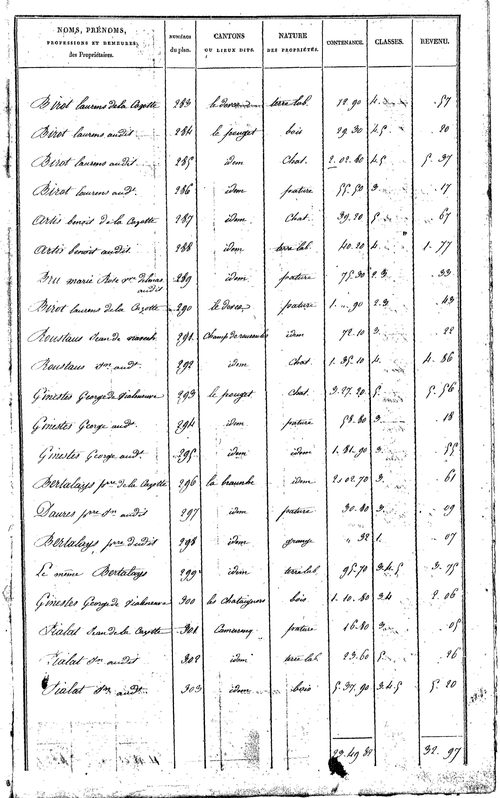 NOMS, PRÉNOMS, PROFESSIONS ET DEMEURES, des Propriétaires. NUMÉROS du plan. CANTONS OU LIEUX DITS. NATURE DES PROPRIÉTÉS. CONTENANCE. CLASSES. REVENU.
Birot laurens de la Cazotte 283 le terre lab. 12.90 4. .57
Birot laurens audit 284 le pouget bois 29.30 4.5 .20
Birot laurens audit 285 idem Chat. 2.02.80 4.5 5.37
Birot laurens aud. 286 idem pature 55.50 3 .17
Artis benoit de la Cazotte 287 idem Chat. 39.20 5 .67
Artis benoit audit 288 idem terre lab. 40.20 4. 1.77
Bru marie Rose audit 289 idem pature 75.30 2.3 .33
Birot laurens de la Cazotte 290 pature 1. " .90 2.3 .43
Roustans Jean de 291 Champ de idem 72.10 3. .22
Roustans Jn aud. 292 idem Chat. 1.35.10 4. 4.86
Ginestes George de 293 le pouget Chat. 3.27.20 5. 5.56
Ginestes George aud. 294 idem pature 58.80 3. .18
Ginestes George aud. 295 idem idem 1.81.90 3. .55
Bertalays pre de la Cazotte 296 la idem 2.02.70 3. .61
Daures pre Jn audit 297 idem pature 30.80 3. .09
Bertalays pre dudit 298 idem grange " 32 1. .07
Le même Bertalays 299 idem terre lab. 95.70 3.4.5 3.75
Ginestes George de 300 les Chataigners bois 1.10.80 3.4 2.06
Fialat Jean de la Cazotte 301 pature 16.80 3. .05
Fialat Jn audit 302 idem terre lab. 23.60 5. .26
Fialat Jn aud. 303 idem bois 5.37.90 3.4.5 5.20
23.49 32.97